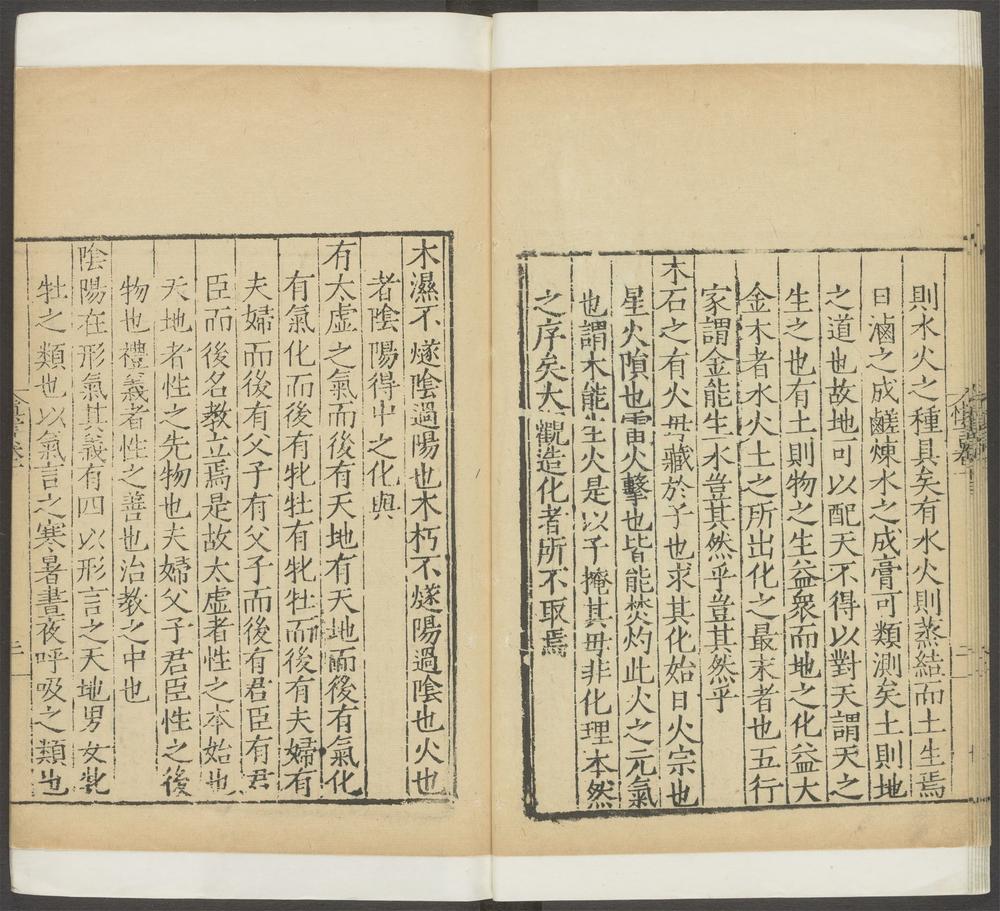 則水火之種具矣有水火則蒸結而土生焉
日滷之成鹺煉水之成膏可類測矣土則地
之道也故地可以配天不得以對天謂天之
生之也有土則物之生益衆而地之化益大
金木者水火土之所出化之最末者也五行
家謂金能生水豈其然乎豈其然乎
木石之有火母藏於子也求其化始日火宗也
星火隕也雷火擊也皆能焚灼此火之元氣
也謂木能生火是以子掩其母非化理本然
之序矣大觀造化者所不取焉
木濕不燧陰過陽也木朽不燧陽過陰也火也
者陰陽得中之化與
有太虛之氣而後有天地有天地而後有氣化
有氣化而後有牝牡有牝牡而後有夫婦有
夫婦而後有父子有父子而後有君臣有君
臣而後名教立焉是故太虛者性之本始也
天地者性之先物也夫婦父子君臣性之後
物也禮義者性之善也治教之中也
陰陽在形氣其義有四以形言之天地男女牝
牡之類也以氣言之寒暑晝夜呼吸之類也